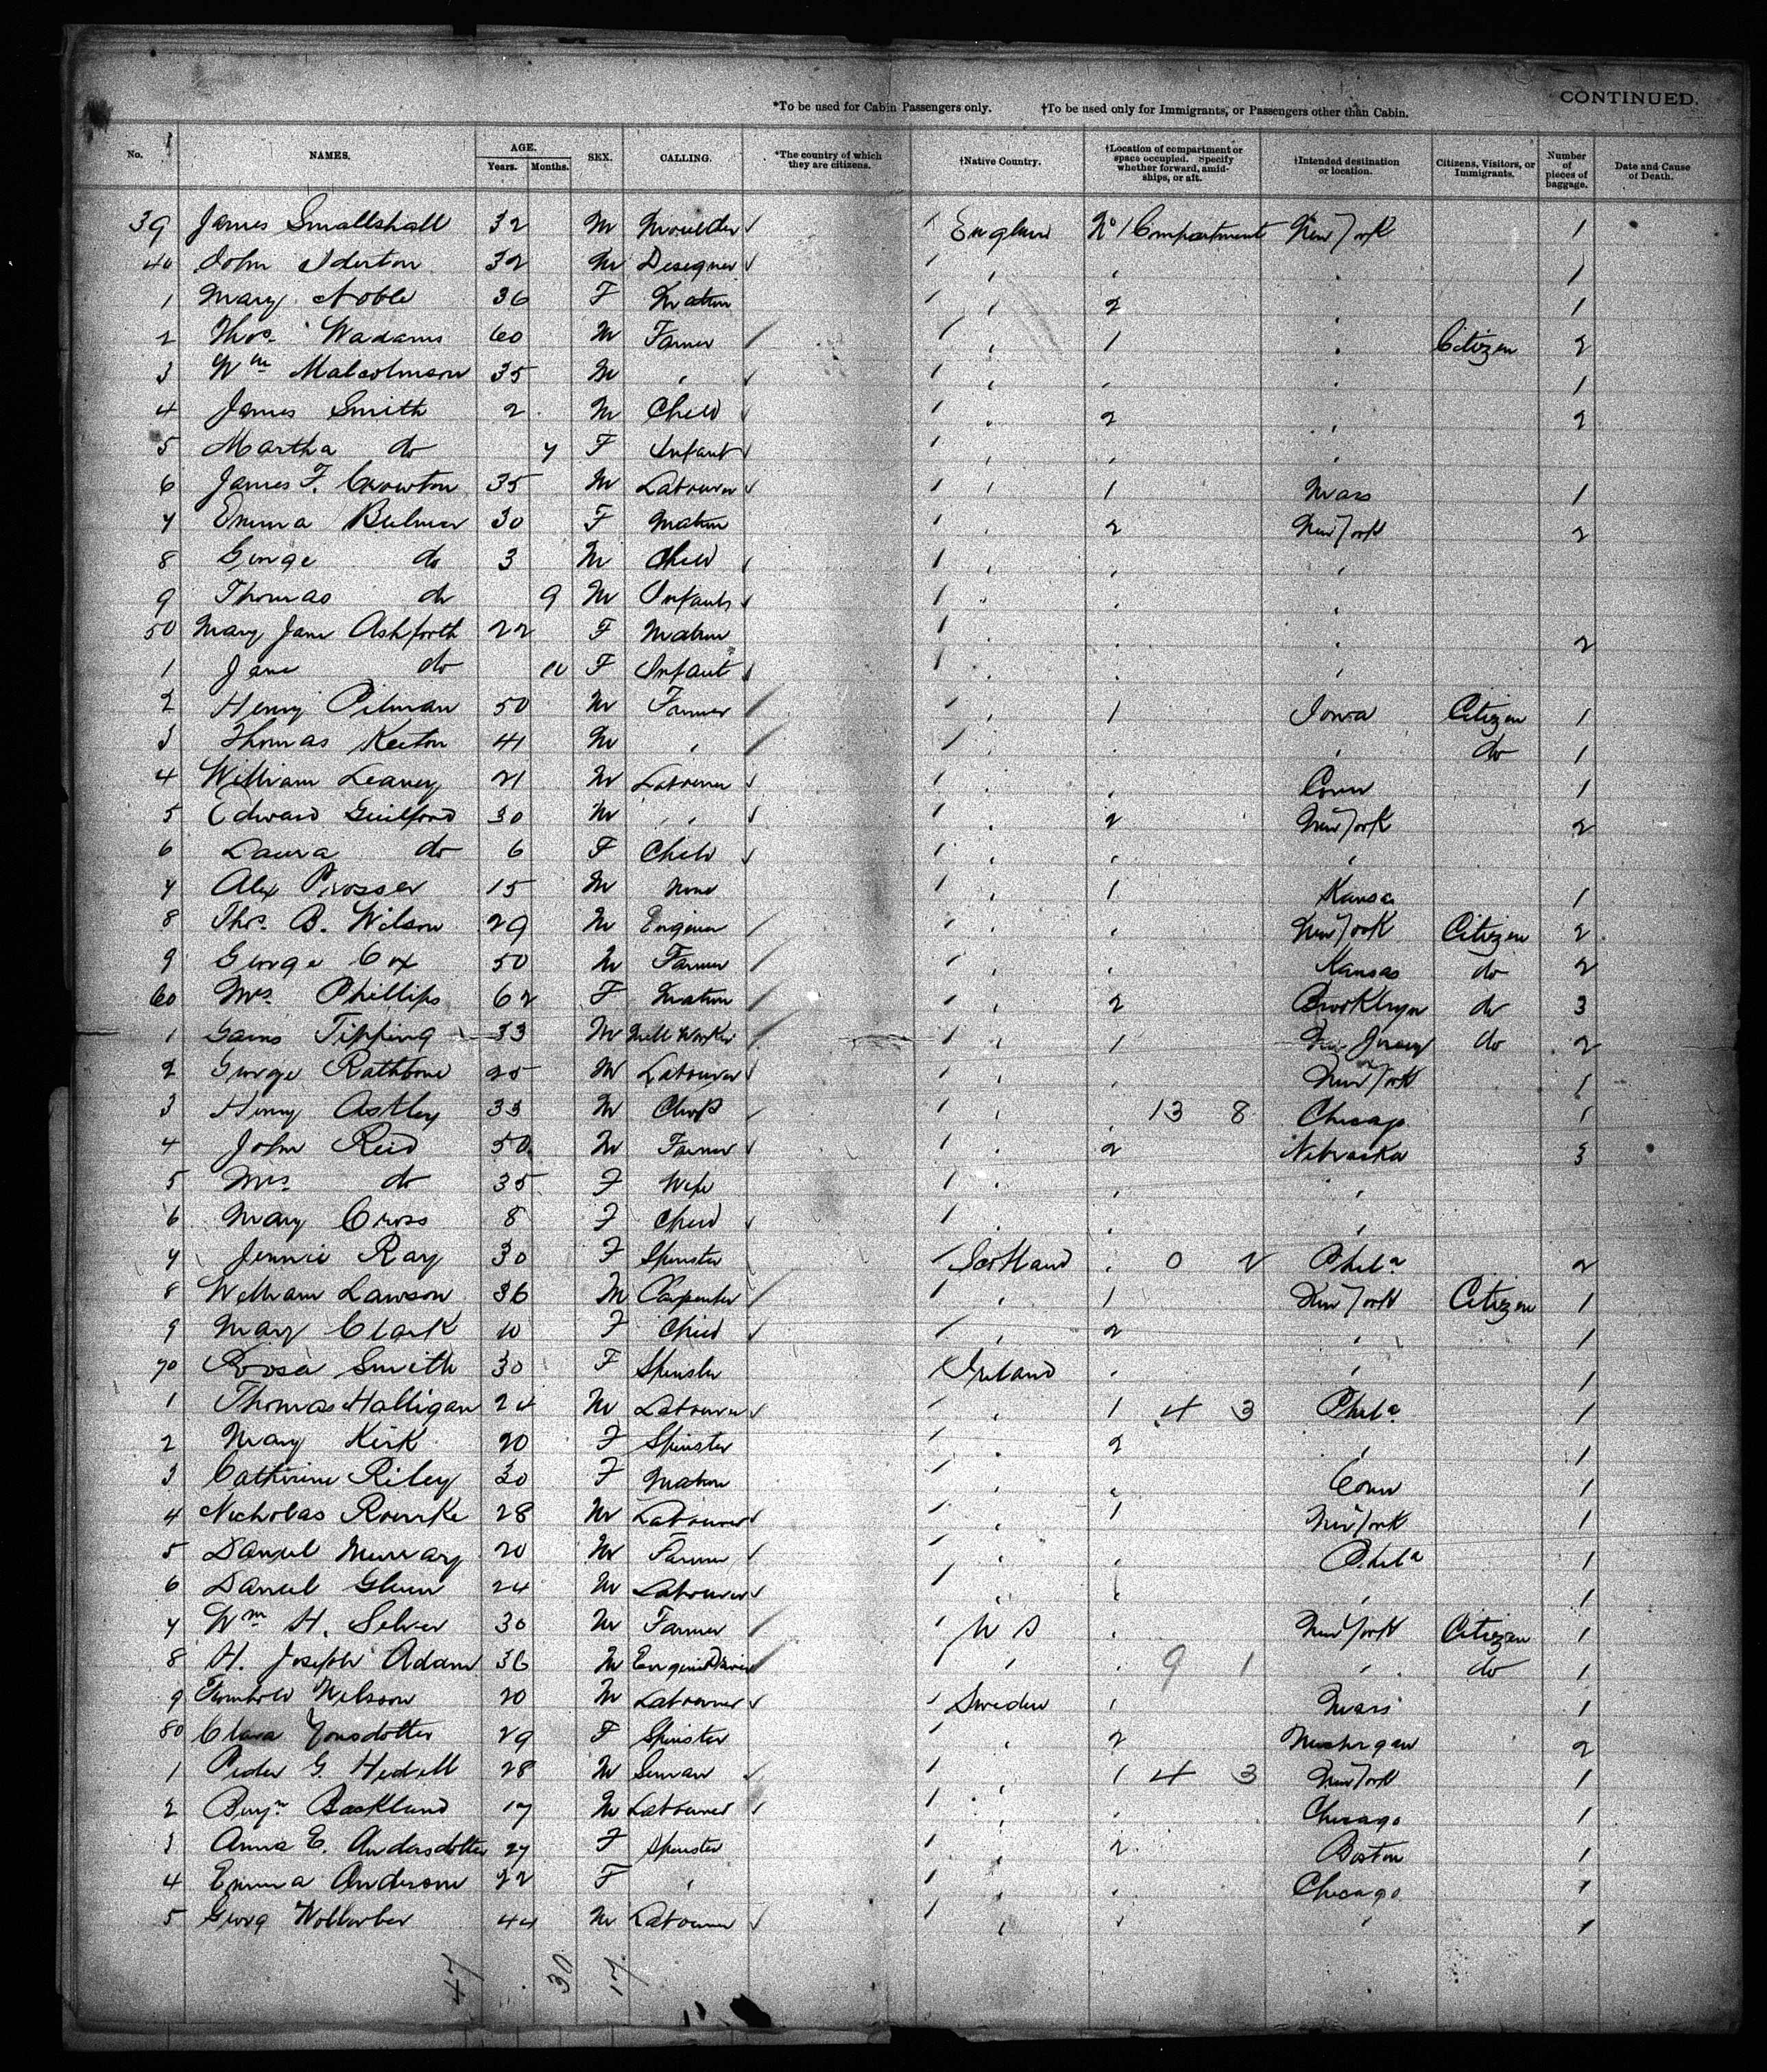 CONTINUED.
*To be used for Cabin Passengers only. †To be used only for Immigrants, or Passengers other than Cabin.
No. NAMES. AGE. Years. Months. SEX. CALLING. *The country of which they are citizens. †Native Country. †Location of compartment or space occupied. Specify whether forward, amidships, or aft. †Intended destination or location. Citizens, Visitors, or Immigrants. Number of pieces of baggage. Date and Cause of Death.
39 James Smallshall 32 M Moulder England No 1 Compartment New York 1
40 John 32 M Designer 1
1 Mary Noble 36 F Matron 2 1
2 Thos. Wadams 60 M Farmer 1 Citizen 2
3 Wm Malcolmson 35 M 1
4 James Smith 2 M Child 2 2
5 Martha do 7 F Infant
6 James F. Crowton 35 M Labourer 1 Mass 1
7 Emma Bulmer 30 F Matron 2 New York 2
8 George do 3 M Child
9 Thomas do 9 M Infant
50 Mary Jane Ashforth 22 F Matron 2
1 Jane do F Infant
2 Henry Pitman 50 M Farmer 1 Iowa Citizen 1
3 Thomas Keeton 41 M do 1
4 William Leaney 21 M Labourer Conn 1
5 Edward Guilford 30 M 2 New York 2
6 Laura do 6 F Child
7 Alex Prosser 15 M None 1 Kansas 1
8 Thos. B. Wilson 29 M Engineer New York Citizen 2
9 George Cox 50 M Farmer Kansas do 2
60 Mrs. Phillips 62 F Matron 2 Brooklyn do 3
1 Tipping 33 M Mill Worker 1 New Jersey do 2
2 George Rathbone 25 M Labourer New York 1
3 Henry Astley 33 M Clerk 13 8 Chicago 1
4 John Reid 50 M Farmer 2 Nebraska 3
5 Mrs. do 35 F Wife
6 Mary Cross 8 F Child
7 Jennie Ray 30 F Spinster Scotland 0 2 Phila 2
8 William Lawson 36 M Carpenter 1 New York Citizen 1
9 Mary Clark 10 F Child 2 1
70 Rosa Smith 30 F Spinster Ireland 1
1 Thomas Halligan 24 M Labourer 1 4 3 Phila 1
2 Mary Kirk 20 F Spinster 2 1
3 Catherine Riley 30 F Matron Conn 1
4 Nicholas Rourke 28 M Labourer 1 New York 1
5 Daniel Murray 20 M Farmer Phila 1
6 Daniel Glenn 24 M Labourer 1
7 Wm H. Silver 30 M Farmer U S New York Citizen 1
8 H. Joseph Adam 36 M Engine Driver 9 1 do 1
9 Nilsson 20 M Labourer Sweden 1 Mass 1
80 Clara Jonsdotter 29 F Spinster 2 Michigan 2
1 Peder G. Hedell 28 M Seman 1 4 3 New York 1
2 Benjn Backlund 17 M Labourer Chicago 1
3 Anna E. Andersdotter 27 F Spinster 2 Boston 1
4 Emma Anderson 22 F Chicago 1
5 Georg 44 M Labourer 1
47 30 17